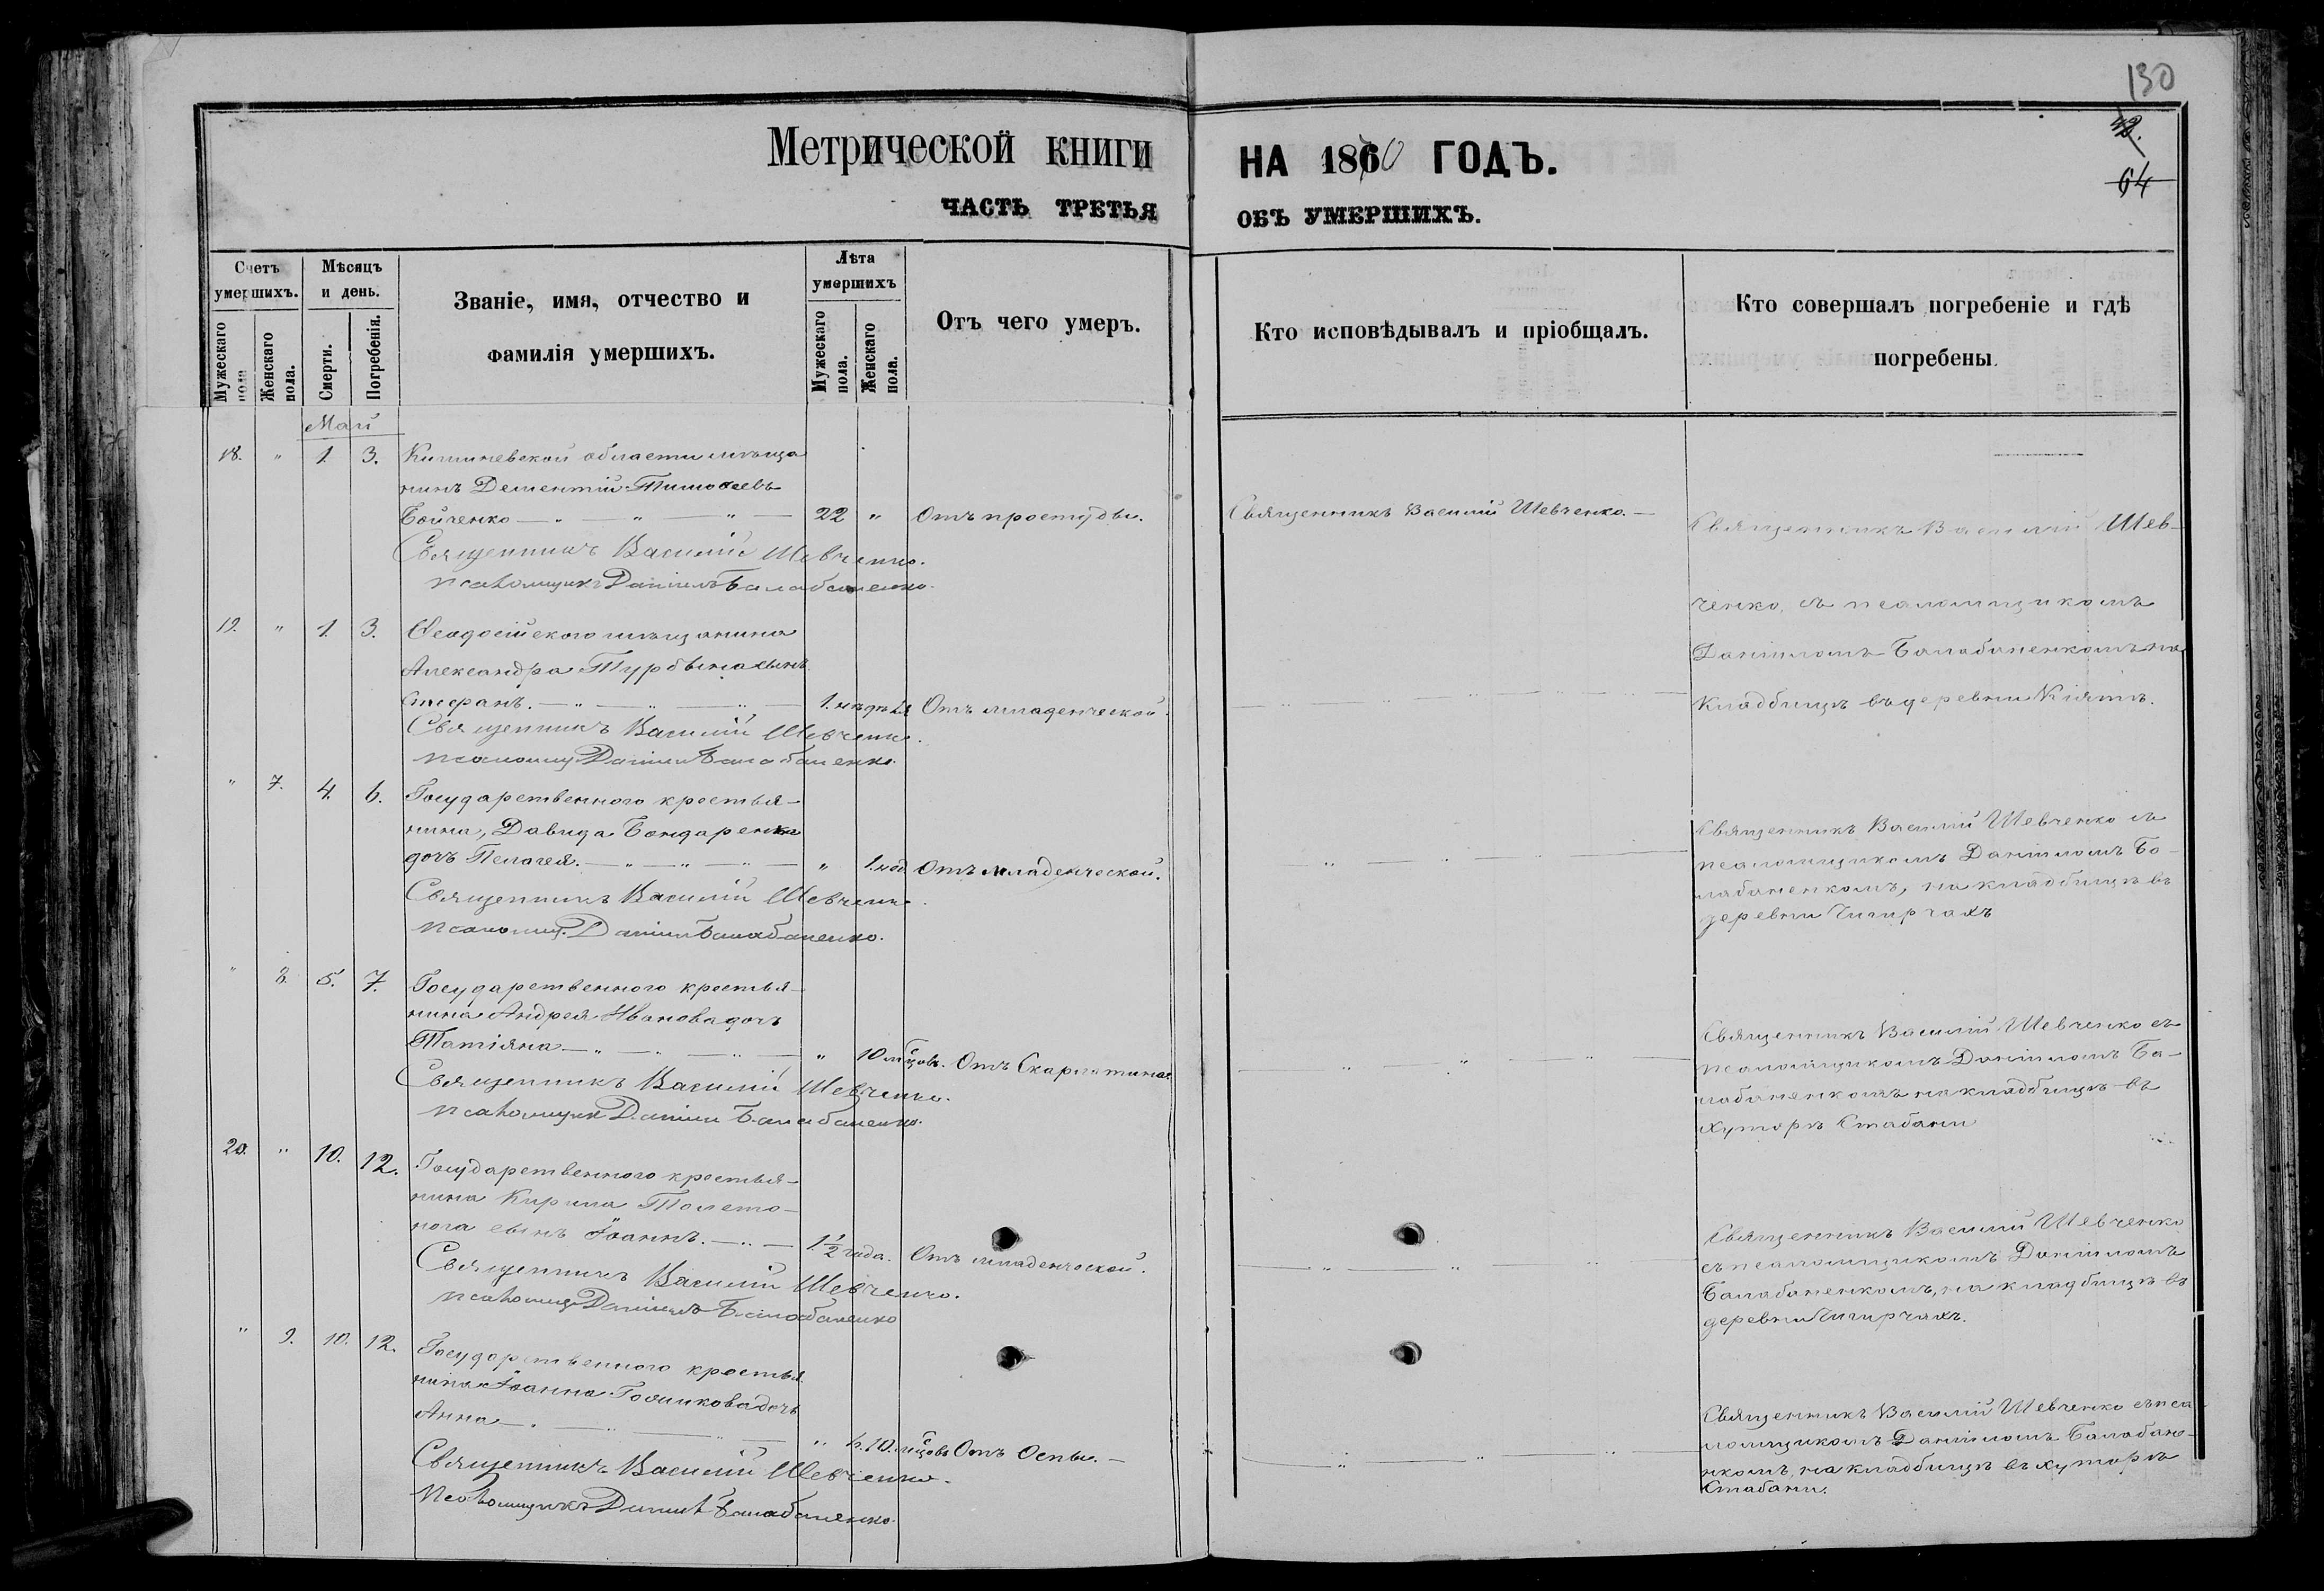 130
42.
64
Метрической книги НА 1870 ГОДЪ.
ЧАСТЬ ТРЕТЬЯ ОБЪ УМЕРШИХЪ.
Счетъ умершихъ.
Мужескаго пола
Женскаго пола.
Мѣсяцъ и день.
Смерти.
Погребенія.
Званіе, имя, отчество и
фамилія умершихъ.
Лѣта умершихъ
Мужескаго пола.
Женскаго пола.
Отъ чего умеръ.
Кто исповѣдывалъ и пріобщалъ.
Кто совершалъ погребеніе и гдѣ
погребены.
Май
18. " 1. 3. Кишиневской области мѣща
нинъ Дементій Тимоѳеевъ
Бойченко — " — " — " — 22 " Отъ простуды.
Священникъ Василій Шевченко.
псаломщикъ Даніилъ Балабаненко.
Священникъ Василій Шевченко. —
Священникъ Василій Шев-
ченко, съ псаломщикомъ
Даніиломъ Балабаненкомъ на
кладбищѣ въ деревни Кіятъ.
19. " 1. 3. Ѳеодосійского мѣщанина
Александра Турбына сынъ
Стефанъ. — " — " — 1. недѣля Отъ младенческой.
Священникъ Василій Шевченко.
псаломщ Даніилъ Балабаненко.
" 7. 4. 6. Государственного крестья-
нина, Давида Бондаренка
дочь Пелагея. — " — " — " — " 1. год Отъ младенческой.
Священникъ Василій Шевченко.
псаломщ. Даніилъ Балабаненко.
Священникъ Василій Шевченко съ
псаломщикомъ Даніиломъ Ба-
лабаненкомъ, на кладбищѣ въ
деревни Чигирчахъ
" 8. 5. 7. Государственного крестья-
нина Андрея Иванова дочь
Татіяна — " — " — " — " 10 мѣцовъ. Отъ Скарлатины
Священникъ Василій Шевченко.
псаломщикъ Даніилъ Балабаненко.
Священникъ Василій Шевченко съ
псаломщикомъ Даніиломъ Ба-
лабаненкомъ на кладбищѣ въ
хуторѣ Стабани
20. " 10. 12. Государственного крестья-
нина Кирила Толсто-
нога сынъ Іоаннъ. — " — 1 1/2 года. Отъ младенческой.
Священникъ Василій Шевченко.
псаломщ Даніилъ Балабаненко
Священникъ Василій Шевченко
съ псаломщикомъ Даніиломъ
Балабаненкомъ, на кладбищѣ въ
деревни Чигирчахъ.
" 9. 10. 12. Государственного крестья
нина Іоанна дочь
Анна — " — " — " 10. мѣцовъ Отъ Оспы. —
Священникъ Василій Шевченко.
Псаломщикъ Даніилъ Балабаненко.
Священникъ Василій Шевченко съ пса
ломщикомъ Даніиломъ Балабане-
нкомъ, на кладбищѣ въ хуторѣ
Стабани.